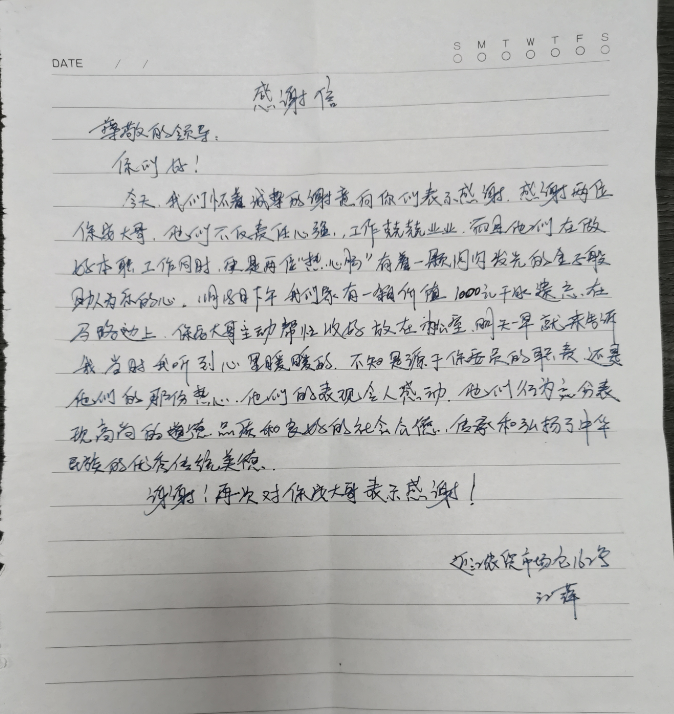 DATE / /
S M T W T F S
感谢信
尊敬的领导：
你们好！
今天，我们怀着诚挚的谢意向你们表示感谢，感谢两位
保安大哥，他们不仅责任心强，工作兢兢业业，而且他们在做
好本职工作同时，更是两位“热心肠”有着一颗闪闪发光的金子般
助人为乐的心。月18日下午我们家有一箱价值1000元干水遗忘在
马路边上，保安大哥主动帮忙收好放在办公室，明天一早就来告诉
我当时我听到心里暖暖的，不知是源于保安员的职责，还是
他们的那份热心，他们的表现令人感动，他们行为充分表
现高尚的道德品质和良好的社会公德，传承和弘扬了中华
民族的优秀传统美德。
谢谢！再次对保安大哥表示感谢！
农贸市场仓162号
江萍